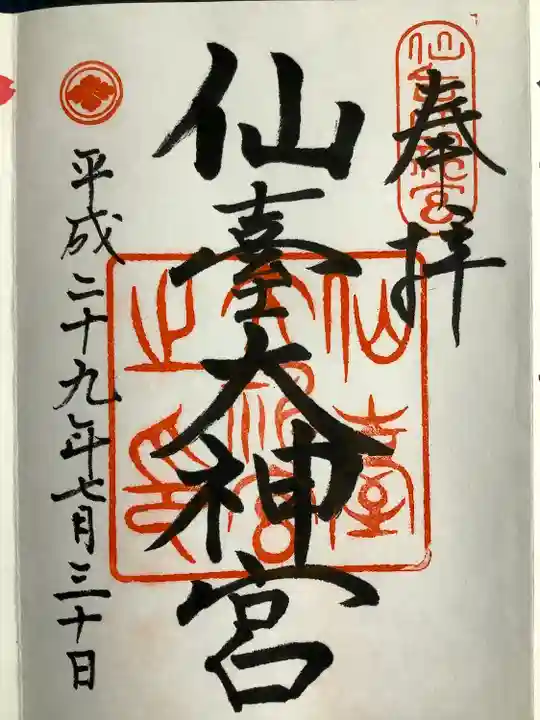 奉拝
仙臺大神宮
仙臺大神宮之印
平成二十九年七月三十日